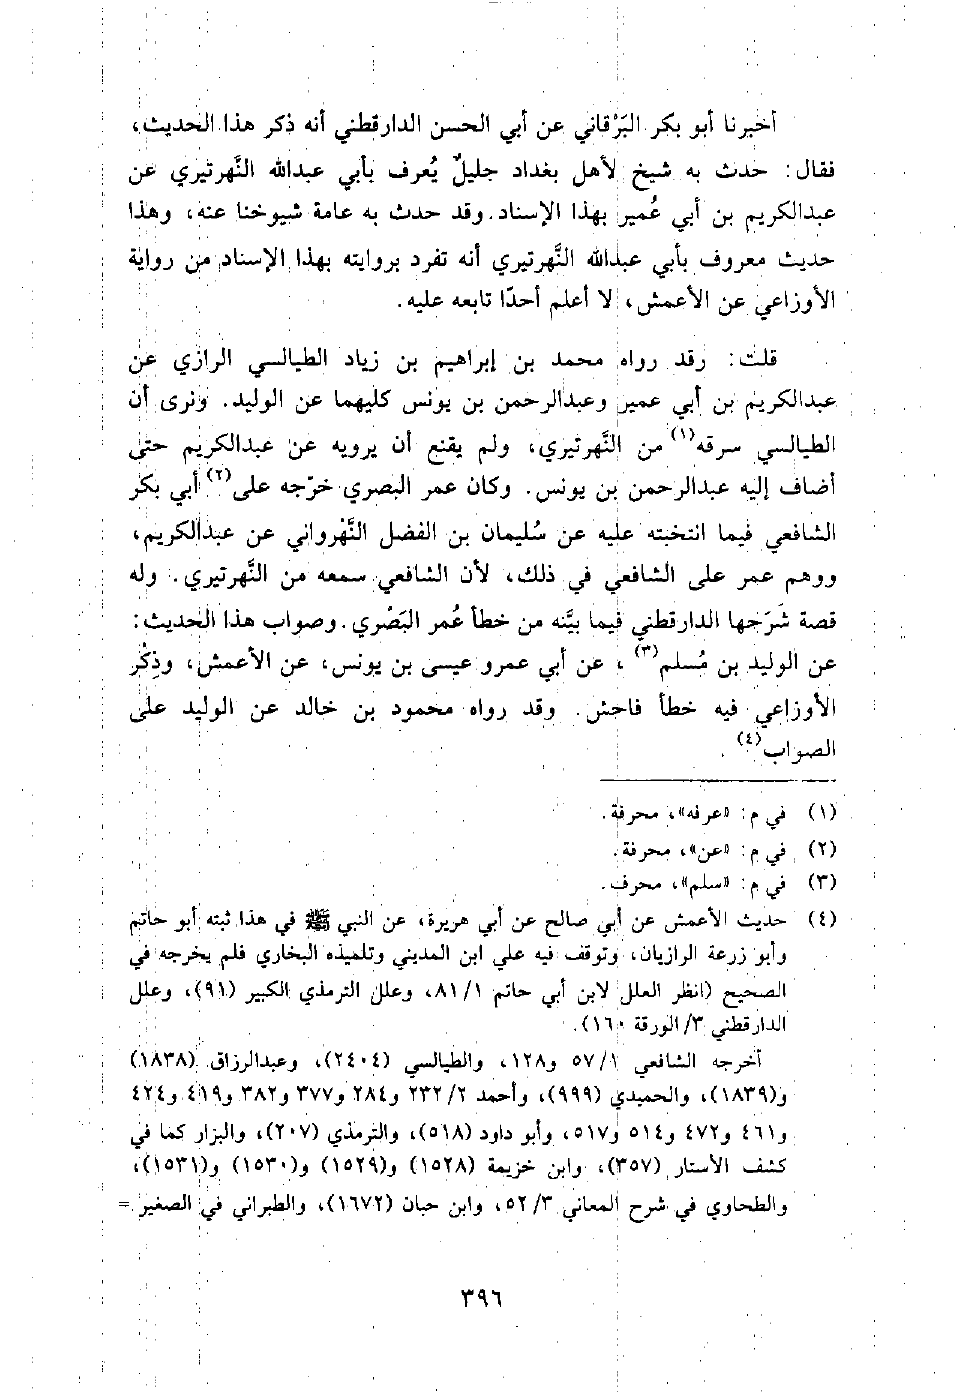 أخبرنا أبو بكر البَرْقاني عن أبي الحسن الدارقطني أنه ذكر هذا الحديث،
فقال: حدث به شيخ لأهل بغداد جليلٌ يُعرف بأبي عبدالله النَّهرتيري عن
عبدالكريم بن أبي عُمير بهذا الإسناد. وقد حدث به عامة شيوخنا عنه، وهذا
حديث معروف بأبي عبدالله النَّهرتيري أنه تفرد بروايته بهذا الإسناد من رواية
الأوزاعي عن الأعمش، لا أعلم أحدًا تابعه عليه.
قلت: رقد رواه محمد بن إبراهيم بن زياد الطيالسي الرازي عن
عبدالكريم بن أبي عمير وعبدالرحمن بن يونس كليهما عن الوليد. ونرى أن
الطيالسي سرقه(١) من النَّهرتيري، ولم يقنع أن يرويه عن عبدالكريم حتى
أضاف إليه عبدالرحمن بن يونس. وكان عمر البصري خرّجه على(٢) أبي بكر
الشافعي فيما انتخبته عليه عن سُليمان بن الفضل النَّهْرواني عن عبدالكريم،
ووهم عمر على الشافعي في ذلك، لأن الشافعي سمعه من النَّهرتيري. وله
قصة شَرَحها الدارقطني فيما بيَّنه من خطأ عُمر البَصْري. وصواب هذا الحديث:
عن الوليد بن مُسلم(٣)، عن أبي عمرو عيسى بن يونس، عن الأعمش، وذِكْر
الأوزاعي فيه خطأ فاحش. وقد رواه محمود بن خالد عن الوليد على
الصواب(٤).
(١) في م: «عرفه»، محرفة.
(٢) في م: «عن»، محرفة.
(٣) في م: «سلم»، محرف.
(٤) حديث الأعمش عن أبي صالح عن أبي هريرة، عن النبي ﷺ في هذا ثبته أبو حاتم
وأبو زرعة الرازيان، وتوقف فيه علي ابن المديني وتلميذه البخاري فلم يخرجه في
الصحيح (انظر العلل لابن أبي حاتم ١/ ٨١، وعلل الترمذي الكبير (٩١)، وعلل
الدارقطني ٣/ الورقة ١٦٠).
أخرجه الشافعي ١/ ٥٧ و١٢٨، والطيالسي (٢٤٠٤)، وعبدالرزاق (١٨٣٨)
و(١٨٣٩)، والحميدي (٩٩٩)، وأحمد ٢/ ٢٣٢ و٢٨٤ و٣٧٧ و٣٨٢ و٤١٩ و٤٢٤
و٤٦١ و٤٧٢ و٥١٤ و٥١٧، وأبو داود (٥١٨)، والترمذي (٢٠٧)، والبزار كما في
كشف الأستار (٣٥٧)، وابن خزيمة (١٥٢٨) و(١٥٢٩) و(١٥٣٠) و(١٥٣١)،
والطحاوي في شرح المعاني ٣/ ٥٢، وابن حبان (١٦٧٢)، والطبراني في الصغير =
٣٩٦